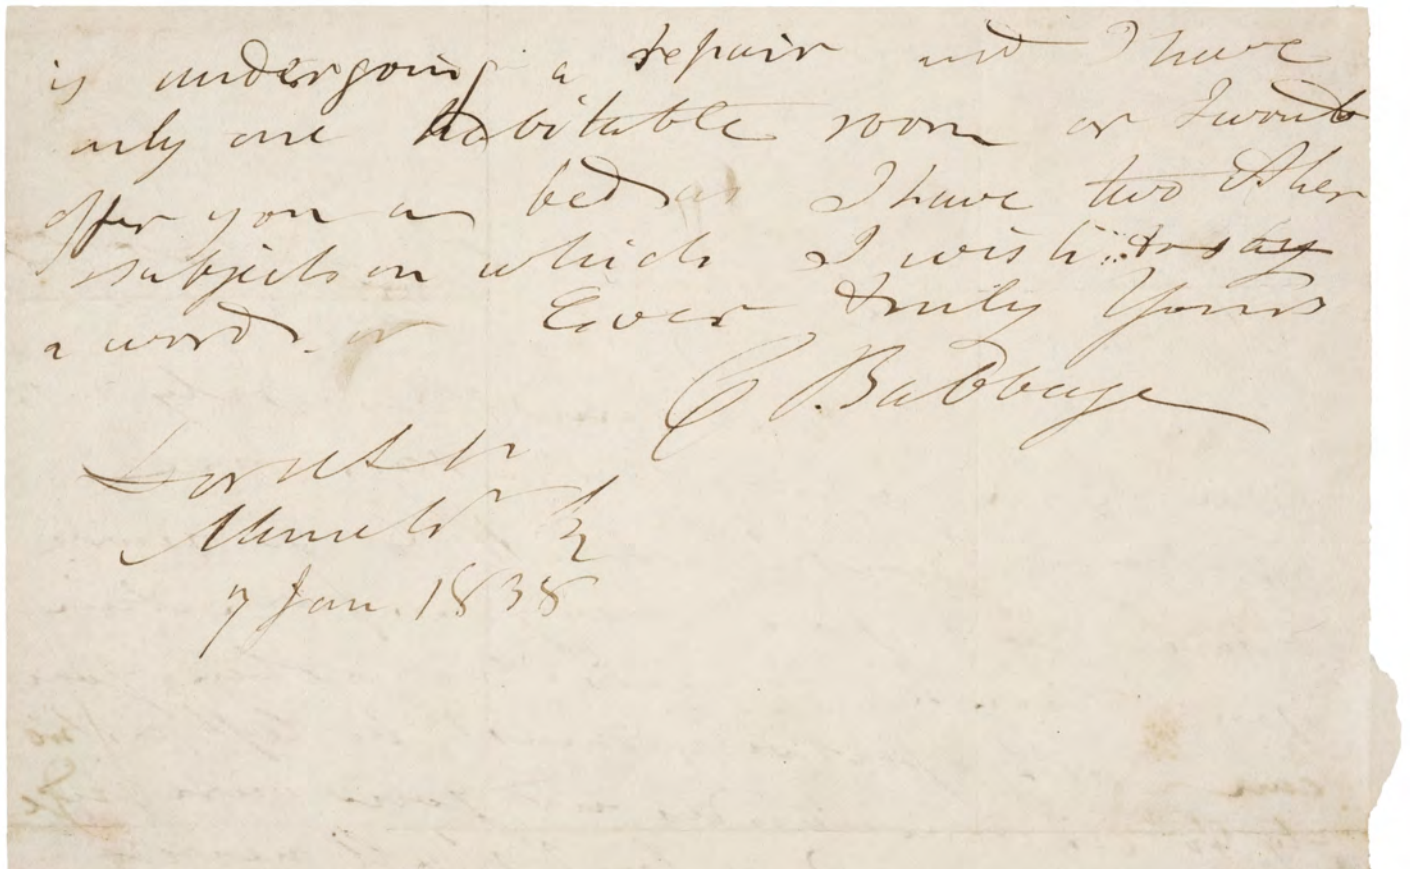 is undergoing a repair and I have
only one habitable room or I would
offer you a bed as I have two other
subjects on which I wish to say
a word. Ever truly Yours
C. Babbage
Dorset St
Manch Sq
7 Jan. 1838